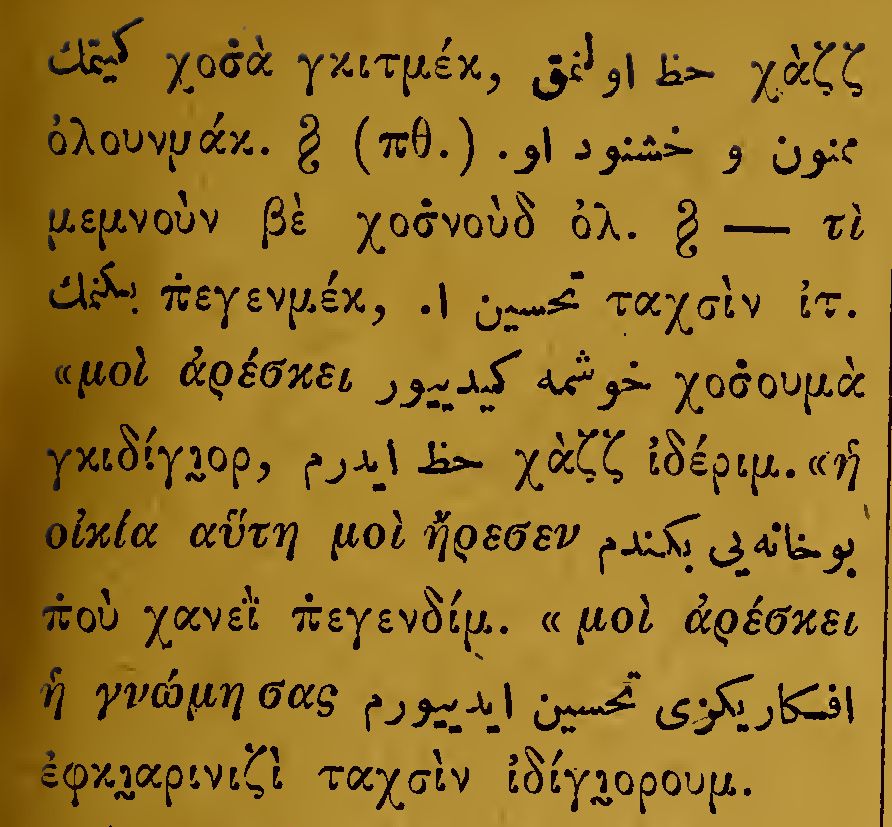 كيتمك χοσ̇ὰ γκιτμέκ, حظ اولنمق χὰζζ
ὀλουνμάκ. § (πθ.) ممنون و خشنود او.
μεμνοὺν βὲ χοσ̇νοὺδ ὀλ. § — τὶ
بكنمك π̇εγενμέκ, تحسين ا. ταχσὶν ἰτ.
«μοὶ ἀρέσκει خوشمه كيدييور χοσ̇ουμὰ
γκιδίγι̮ορ, حظ ايدرم χὰζζ ἰδέριμ. «ἡ
οἰκία αὕτη μοὶ ἤρεσεν بو خانه‌يى بكندم
π̇οὺ χανεΐ π̇εγενδίμ. «μοὶ ἀρέσκει
ἡ γνώμη σας افكاريكزى تحسين ايدييورم
ἐφκι̮αρινιζὶ ταχσὶν ἰδίγι̮ορουμ.